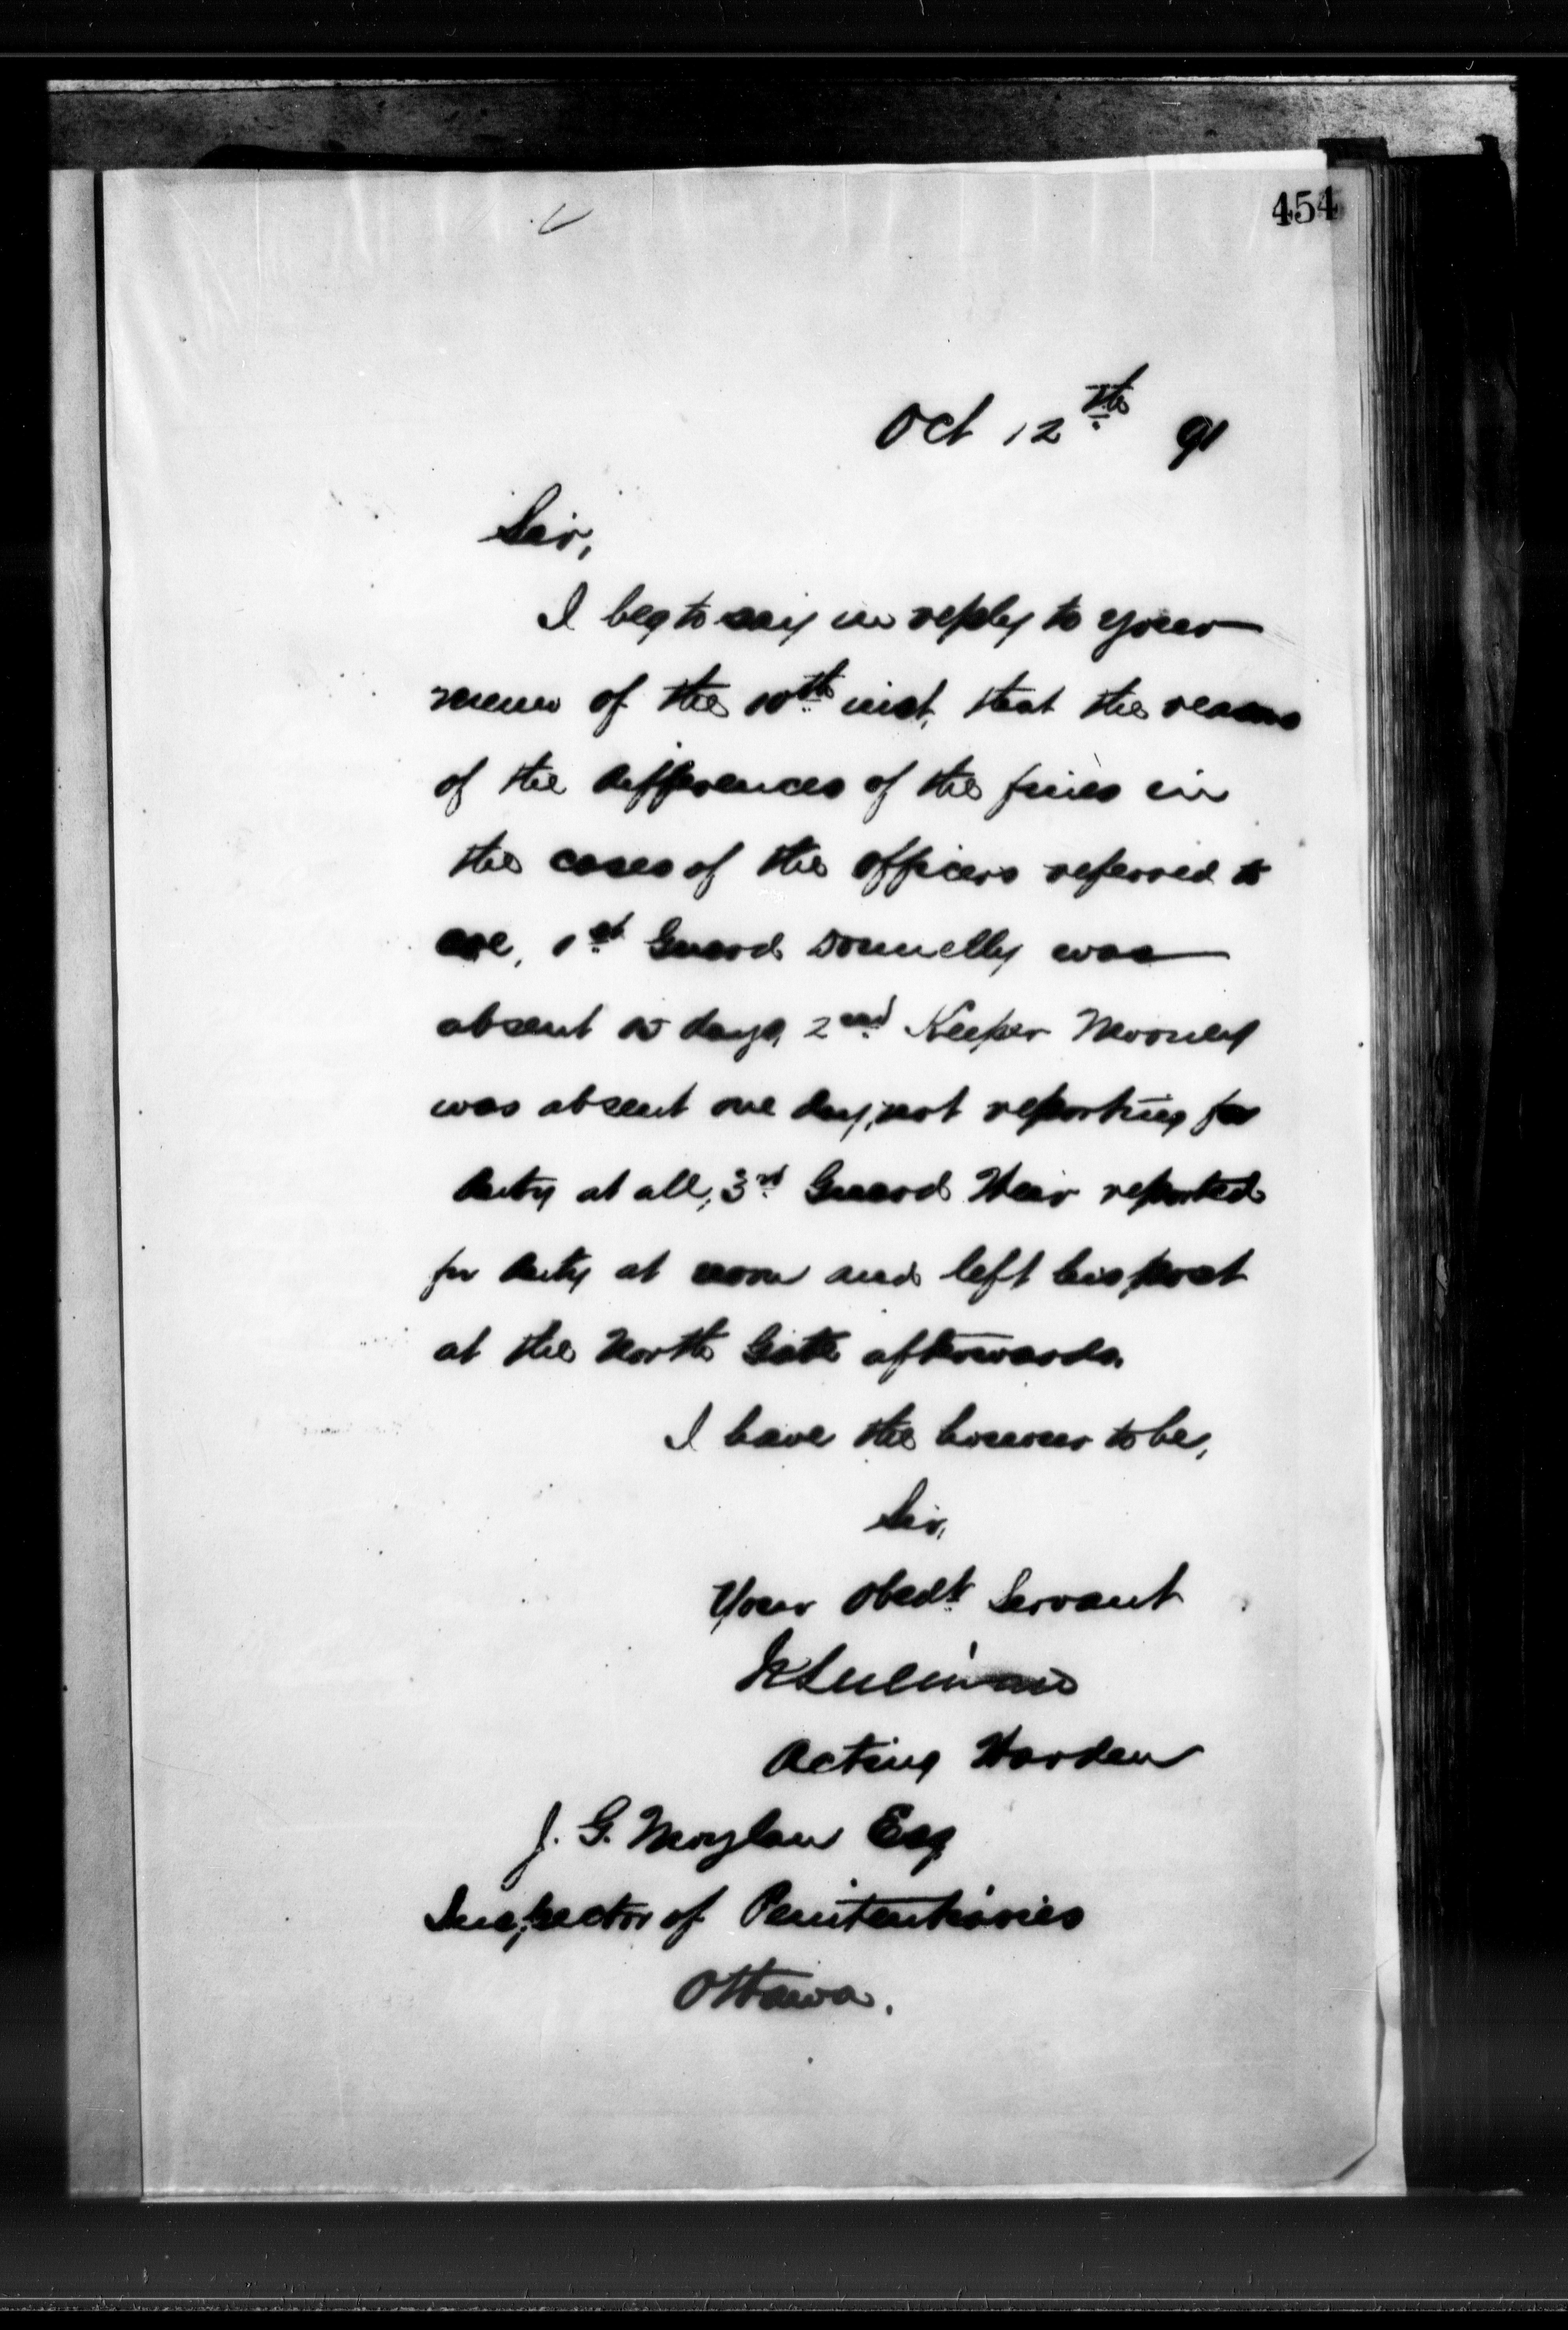 454
Oct 12th 91
Sir,
I beg to say in reply to your
memo of the 10th inst, that the reasons
of the differences of the fines in
the cases of the officers referred to
are, 1st Guard Donnelly was
absent days, 2nd Keeper Mooney
was absent one day, not reporting for
duty at all, 3rd Guard Weir reported
for duty at noon and left his post
at the North Gate afterwards.
I have the honour to be,
Sir,
Your Obedt Servant
Sullivan
Acting Warden
J. G. Moylan Esq
Inspector of Penitentiaries
Ottawa.